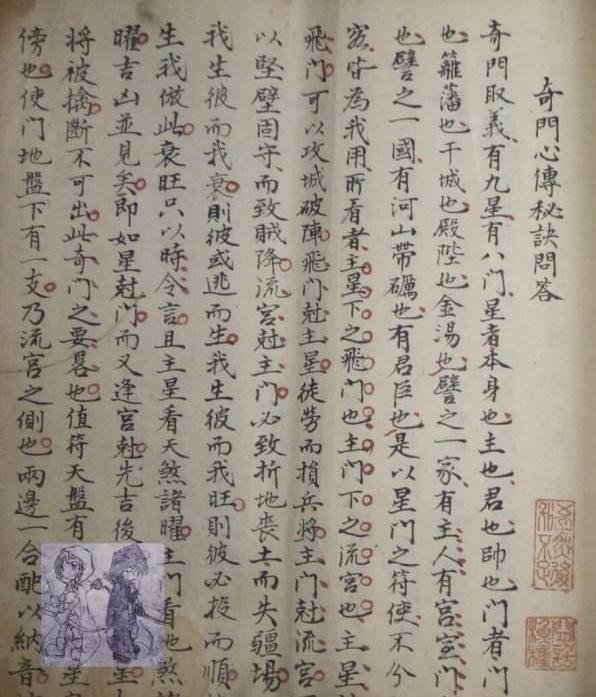 奇門心傳秘訣問答
奇門取義有九星有八門星者本身也主也君也帥也門者門
也籬藩也干城也殿陛也金湯也譬之一家有主人有宮室門
也譬之一國有河山帶礪也有君臣也是以星門之符使不分
客皆為我用所看者主星下之飛門也主門下之流宮也主星
飛門可以攻城破陣飛門尅主星徒勞而損兵將主門尅流宮
以堅壁固守而致賊降流宮尅主門必致折地喪土而失疆場
我生彼而我衰則彼或逃而生我生彼而我旺則彼必投而順
生我倣此衰旺只以時令言且主星看天煞諸曜主門看地煞
曜吉凶並見矣即如星尅門而又逢宮尅先吉後
將被擒斷不可出此奇門之要畧也值符天盤有
傍也使門地盤下有一支乃流宮之側也兩邊一合配以納音